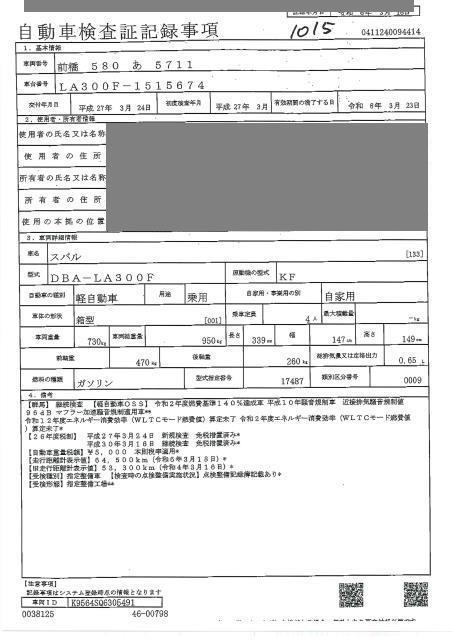 自動車検査証記録事項
1015
0411240094414
1. 基本情報
車両番号 前橋 580 あ 5711
車台番号 LA300F-1515674
交付年月日 平成 27年 3月 24日 初度検査年月 平成 27年 3月 有効期間の満了する日 令和 6年 3月 23日
2. 使用者・所有者情報
使用者の氏名又は名称
使用者の住所
所有者の氏名又は名称
所有者の住所
使用の本拠の位置
3. 車両詳細情報
車名 スバル [133]
型式 DBA-LA300F 原動機の型式 KF
自動車の種別 軽自動車 用途 乗用 自家用・事業用の別 自家用
車体の形状 箱型 [001] 乗車定員 4人 最大積載量 -kg
車両重量 730kg 車両総重量 950kg 長さ 339cm 幅 147cm 高さ 149cm
前軸重 470kg 後軸重 260kg 総排気量又は定格出力 0.65 L
燃料の種類 ガソリン 型式指定番号 17487 類別区分番号 0009
4. 備考
[群馬] 継続検査 [軽自動車OSS] 令和2年度燃費基準140%達成車 平成10年騒音規制車 近接排気騒音規制値
96dB マフラー加速騒音規制適用車**
令和12年度エネルギー消費効率(WLTCモード燃費値)算定未了 令和2年度エネルギー消費効率(WLTCモード燃費値
)算定未了*
[26年度税制] 平成27年3月24日 新規検査 免税措置済み*
平成30年3月16日 継続検査 免税措置済み*
[自動車重量税額] ¥5,000 本則税率適用*
[走行距離計表示値] 64,500km (令和6年3月18日)*
[旧走行距離計表示値] 53,300km (令和4年3月16日)*
[受検種別] 指定整備車 [検査時の点検整備実施状況] 点検整備記録簿記載あり*
[受検形態] 指定整備工場**
[注意事項]
記録事項はシステム登録時点の情報となります
車両ID K9564SQ6305491
0038125 46-00798